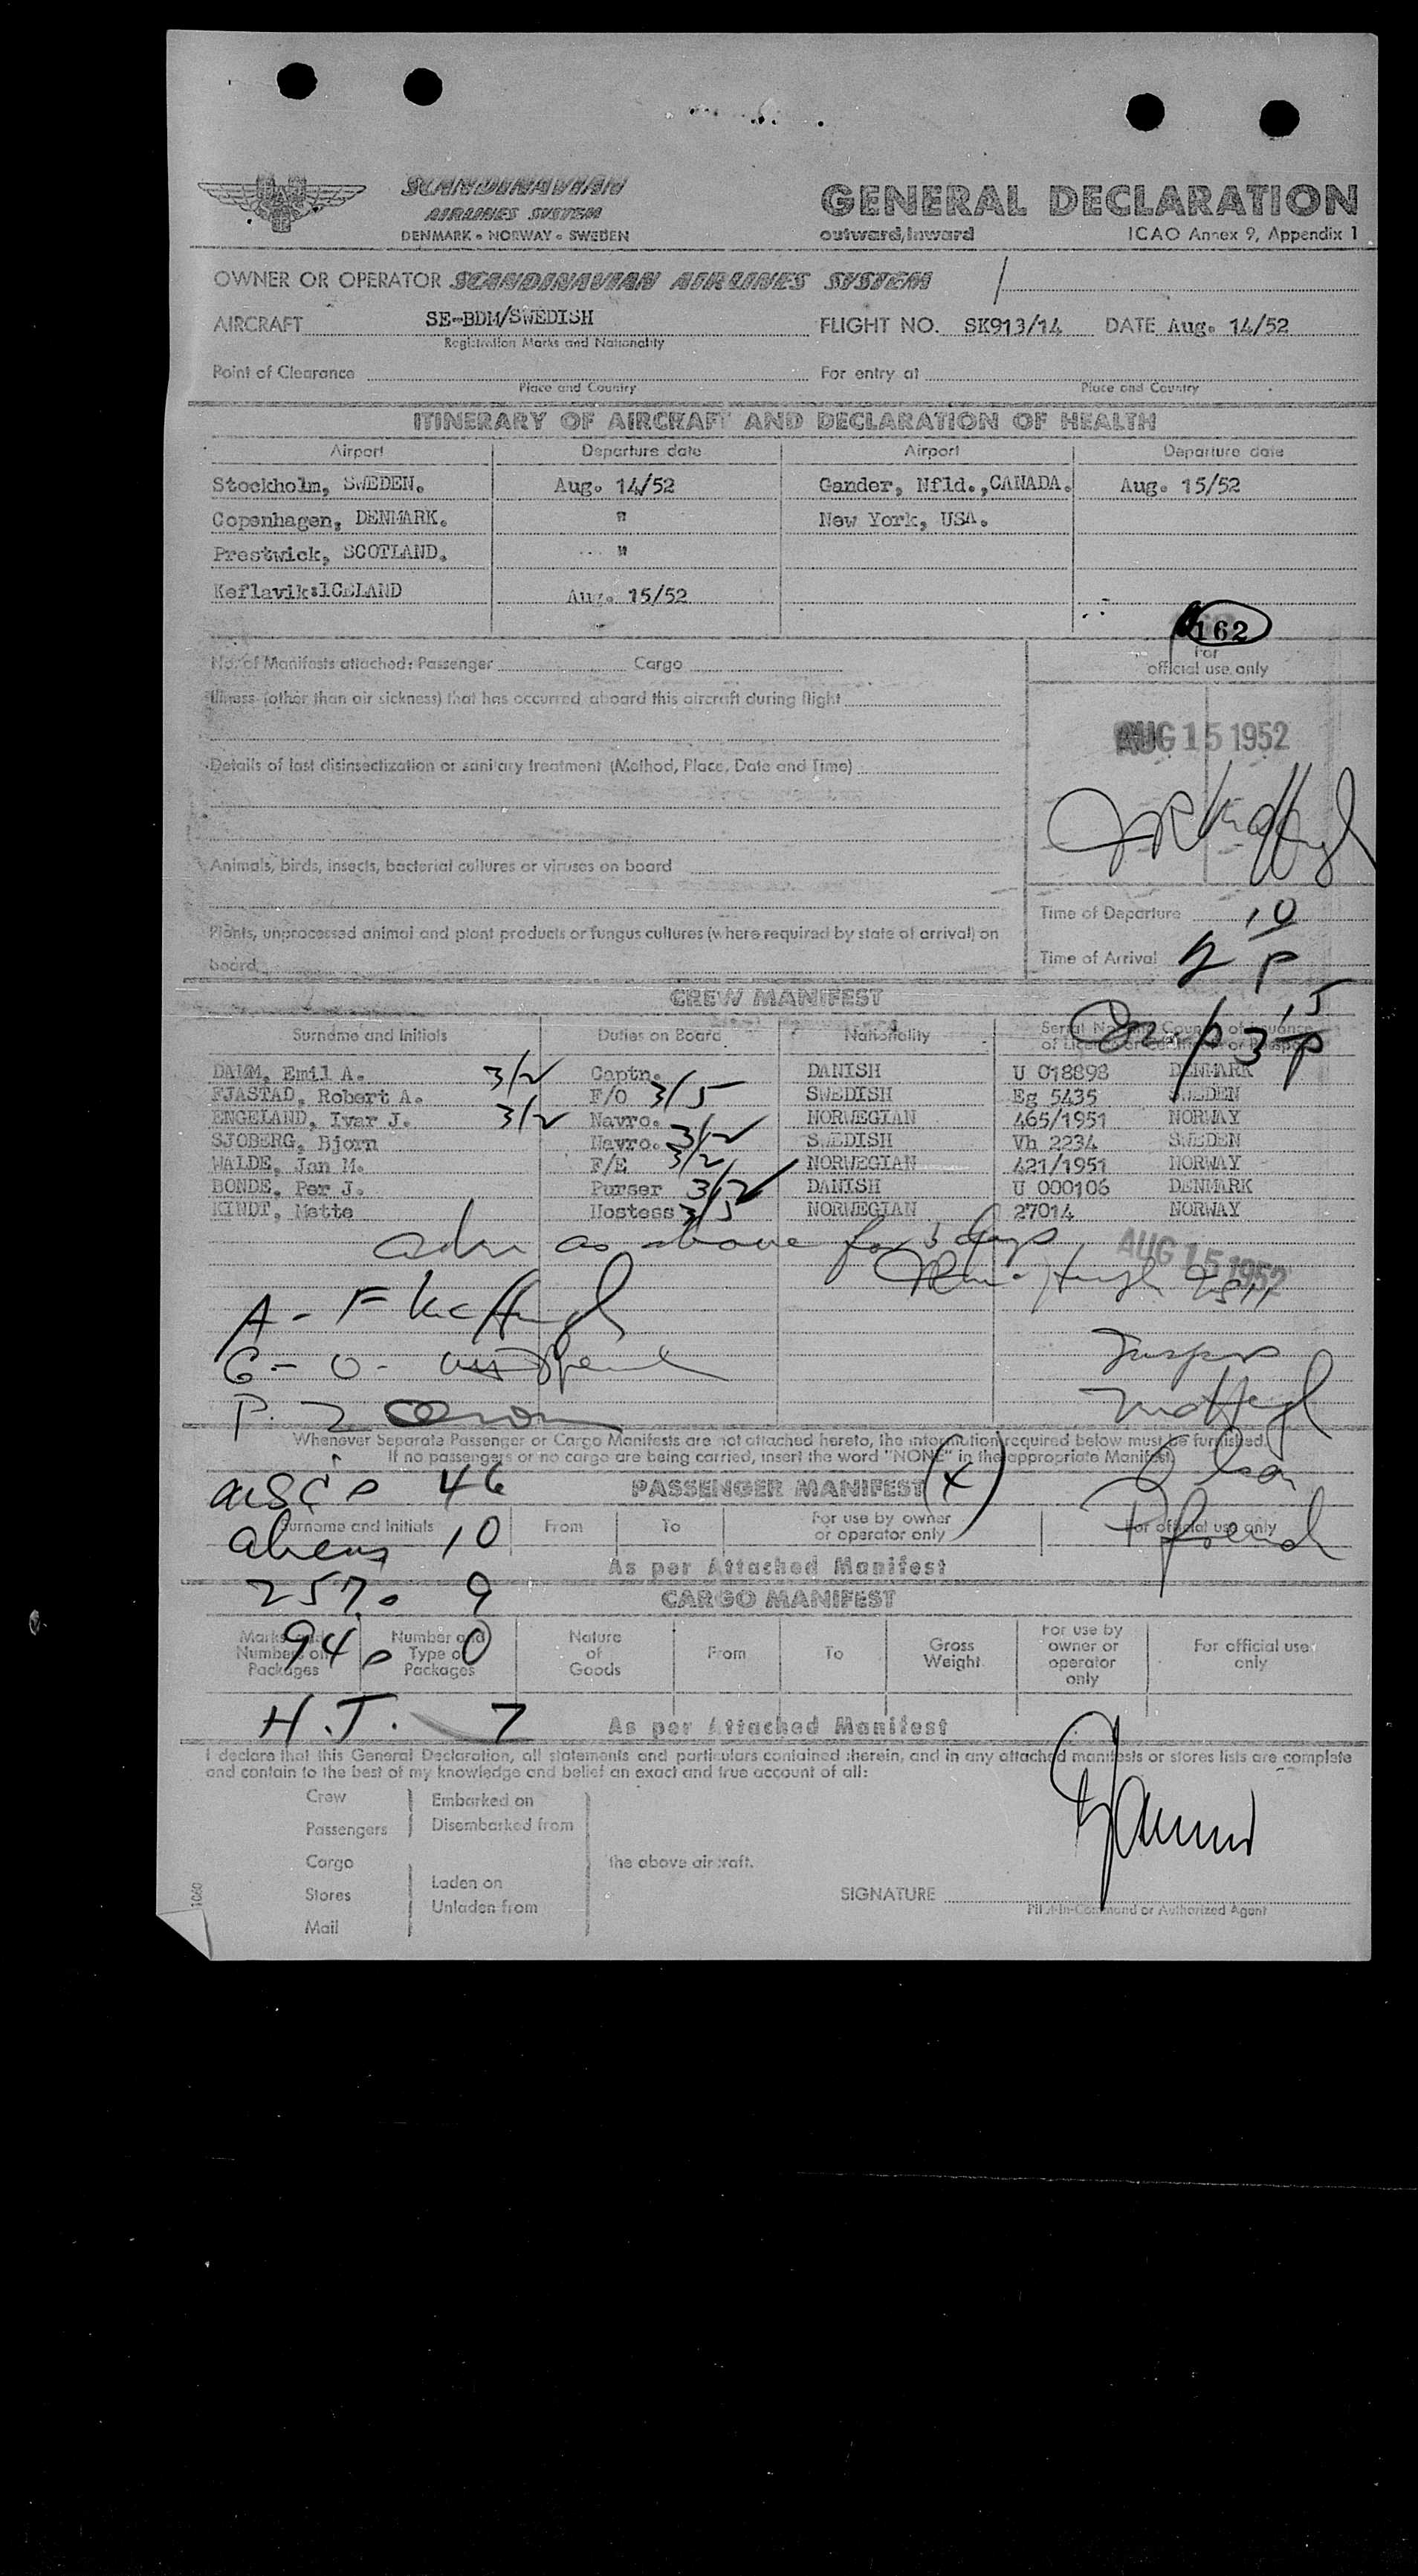 SCANDINAVIAN
AIRLINES SYSTEM
DENMARK • NORWAY • SWEDEN
GENERAL DECLARATION
outward/inward ICAO Annex 9, Appendix 1
OWNER OR OPERATOR SCANDINAVIAN AIRLINES SYSTEM
AIRCRAFT SE-BDM/SWEDISH FLIGHT NO. SK913/14 DATE Aug. 14/52
Registration Marks and Nationality
Point of Clearance For entry at
Place and Country Place and Country
ITINERARY OF AIRCRAFT AND DECLARATION OF HEALTH
Airport Departure date Airport Departure date
Stockholm, SWEDEN. Aug. 14/52 Gander, Nfld.,CANADA. Aug. 15/52
Copenhagen, DENMARK. " New York, USA.
Prestwick, SCOTLAND. "
Keflavik:ICELAND Aug. 15/52
162
For
official use only
No. of Manifests attached: Passenger Cargo
Illness (other than air sickness) that has occurred aboard this aircraft during flight
AUG 15 1952
Details of last disinsectization or sanitary treatment (Method, Place, Date and Time)
Animals, birds, insects, bacterial cultures or viruses on board
Time of Departure
Plants, unprocessed animal and plant products or fungus cultures (where required by state of arrival) on
board
Time of Arrival
CREW MANIFEST
Surname and Initials Duties on Board Nationality
DAMM, Emil A. 3/2 Captn. DANISH U 018898 DENMARK
FJASTAD, Robert A. F/O 3/5 SWEDISH Eg 5435 SWEDEN
ENGELAND, Ivar J. 3/2 Navro. NORWEGIAN 465/1951 NORWAY
SJOBERG, Bjorn Navro. 3/2 SWEDISH Vh 2234 SWEDEN
WALDE, Jan M. F/E 3/2 NORWEGIAN 421/1951 NORWAY
BONDE, Per J. Purser 3/2 DANISH U 000106 DENMARK
KINDT, Mette Hostess 3/5 NORWEGIAN 27014 NORWAY
as above for days
AUG 15 1952
Whenever Separate Passenger or Cargo Manifests are not attached hereto, the information required below must be furnished.
If no passengers or no cargo are being carried, insert the word "NONE" in the appropriate Manifest.
46
PASSENGER MANIFEST (x)
Surname and Initials From To For use by owner or operator only For official use only
aliens 10
As per Attached Manifest
257 9
CARGO MANIFEST
Marks and Numbers on Packages Number and Type of Packages Nature of Goods From To Gross Weight For use by owner or operator only For official use only
94 0
H.T. 7
As per Attached Manifest
I declare that this General Declaration, all statements and particulars contained therein, and in any attached manifests or stores lists are complete
and contain to the best of my knowledge and belief an exact and true account of all:
Crew Embarked on
Passengers Disembarked from
Cargo the above aircraft.
Stores Laden on
Unladen from
Mail
SIGNATURE
Pilot-in-Command or Authorized Agent
1080